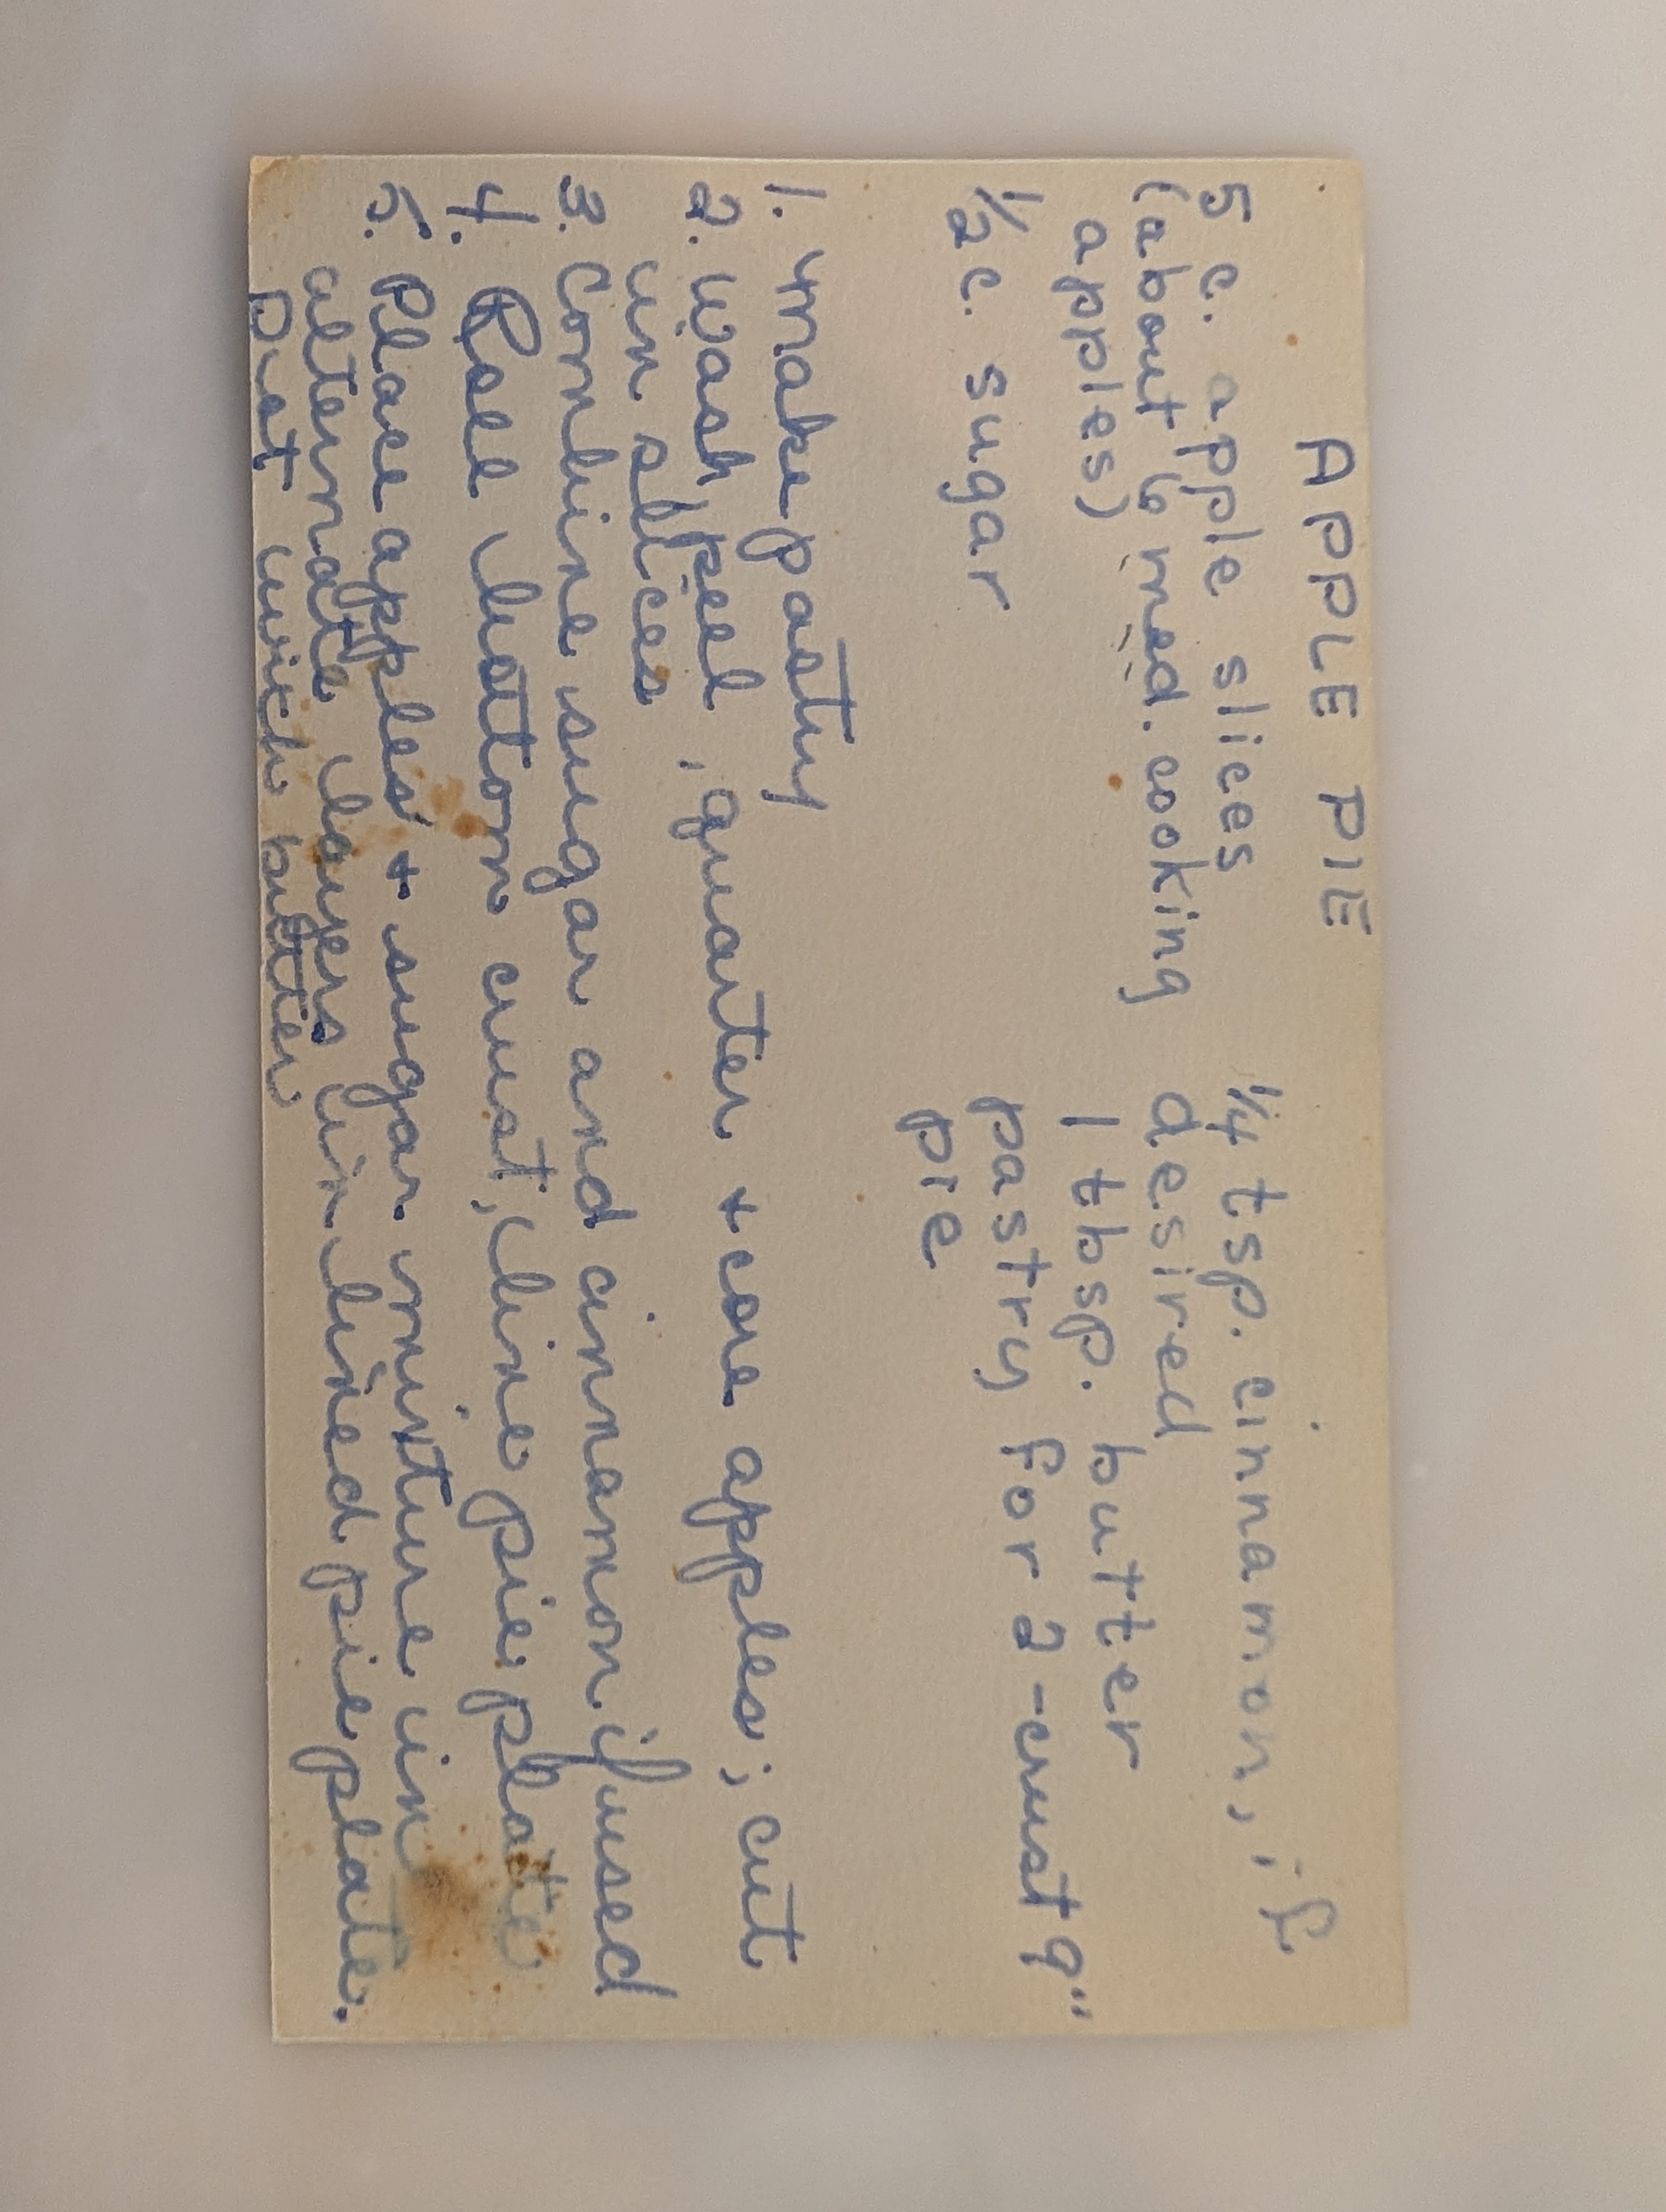 APPLE PIE
5 c. apple slices
(about 6 med. cooking
apples)
1/2 c. sugar
1/4 tsp. cinnamon, if
desired
1 tbsp. butter
pastry for 2-crust 9"
pie
1. Make pastry
2. Wash, peel, quarter + core apples; cut
in slices
3. Combine sugar and cinnamon if used
4. Roll bottom crust, line pie plate
5. Place apples + sugar mixture in
alternate layers in lined pie plate.
Dot with butter